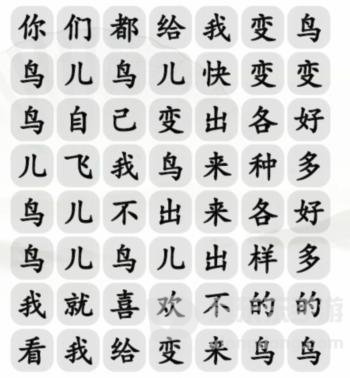 你们都给我变鸟
鸟儿鸟儿快变变
鸟自己变出各好
儿飞我鸟来种多
鸟儿不出来各好
鸟儿鸟儿出样多
我就喜欢不的的
看我给变来鸟鸟